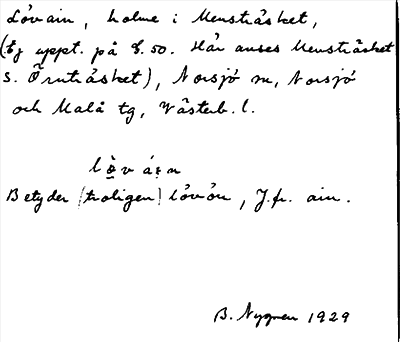 Lövain, holme i Mensträsket,
(Ej uppt. på g.50. Här anses Mensträsket
s. Örnträsket), Norsjö sn, Norsjö
och Malå tg, Västerb. l.
Betyder (troligen) lövön, Jfr. ain.
B. Nygren 1929